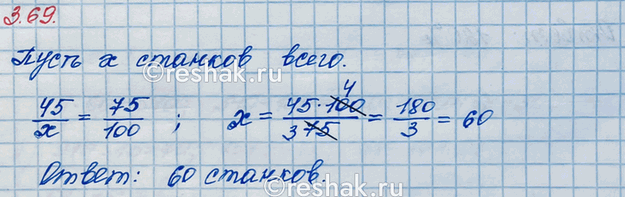 3.69.
Пусть x станков всего.
45/x = 75/100 ; x = 45·100/75 = 180/3 = 60
4
3
Ответ: 60 станков.
©reshak.ru